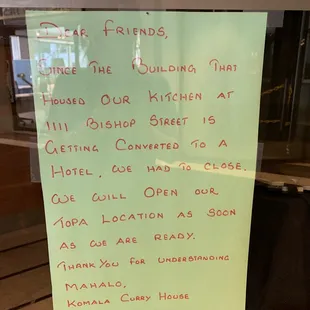 Dear Friends,
Since The Building That
Housed Our Kitchen at
1111 Bishop Street is
Getting Converted to a
Hotel, we had to close.
We will Open our
Topa Location as soon
as we are ready.
Thank you for understanding
Mahalo,
Komala Curry House